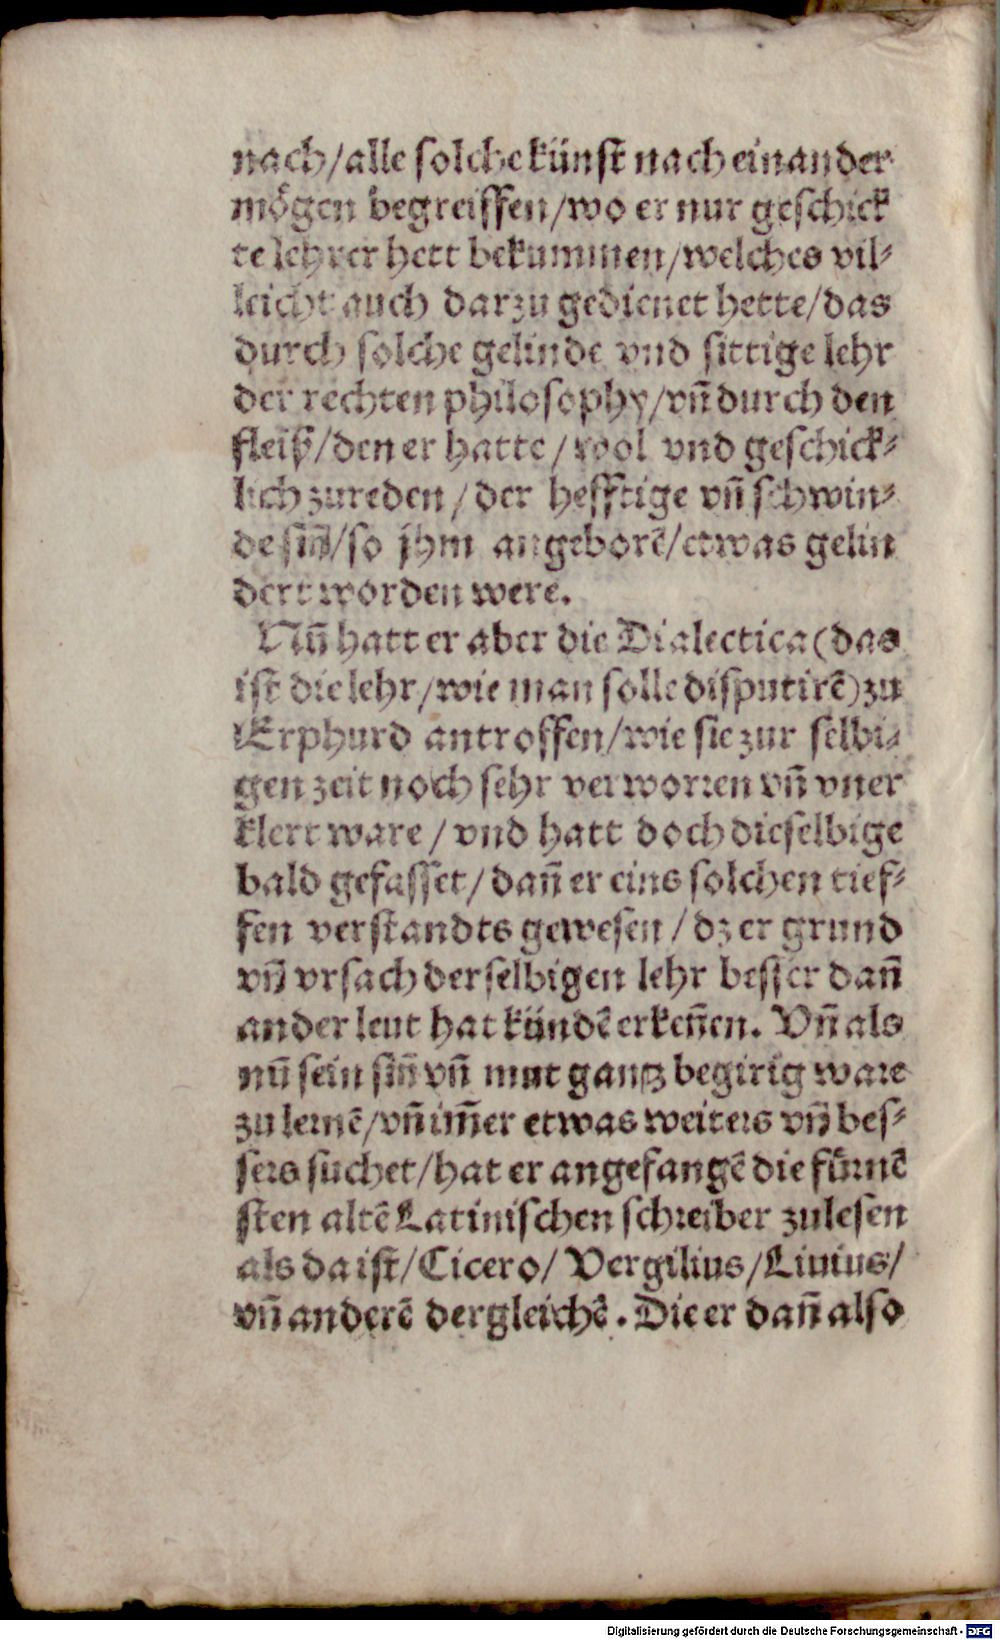 nach/alle solche künst nach einander
mögen begreiffen/wo er nur geschick
te lehrer hett bekummen/welches vil⸗
leicht auch darzu gedienet hette/das
durch solche gelinde vnd sittige lehr
der rechten philosophy/vñ durch den
fleiß/den er hatte/wol vnd geschick⸗
lich zureden/der hefftige vñ schwin⸗
de siñ/so jhm angeborē/etwas gelin
dert worden were.
Nuñ hatt er aber die Dialectica (das
ist die lehr/wie man solle disputirē) zu
Erphurd antroffen/wie sie zur selbi⸗
gen zeit noch sehr verworren vñ vner
klert ware/vnd hatt doch dieselbige
bald gefasset/dañ er eins solchen tief⸗
fen verstandts gewesen/dz er grund
vñ vrsach derselbigen lehr besser dañ
ander leut hat kündē erkeñen. Vñ als
nũ sein siñ vñ mut gantz begirig ware
zu lernē/vñ im̃er etwas weiters vñ bes⸗
sers suchet/hat er angefangē die fürnē
sten altē Latinischen schreiber zulesen
als da ist/Cicero/Vergilius/Liuius/
vñ anderē dergleichē. Die er dañ also
Digitalisierung gefördert durch die Deutsche Forschungsgemeinschaft - DFG